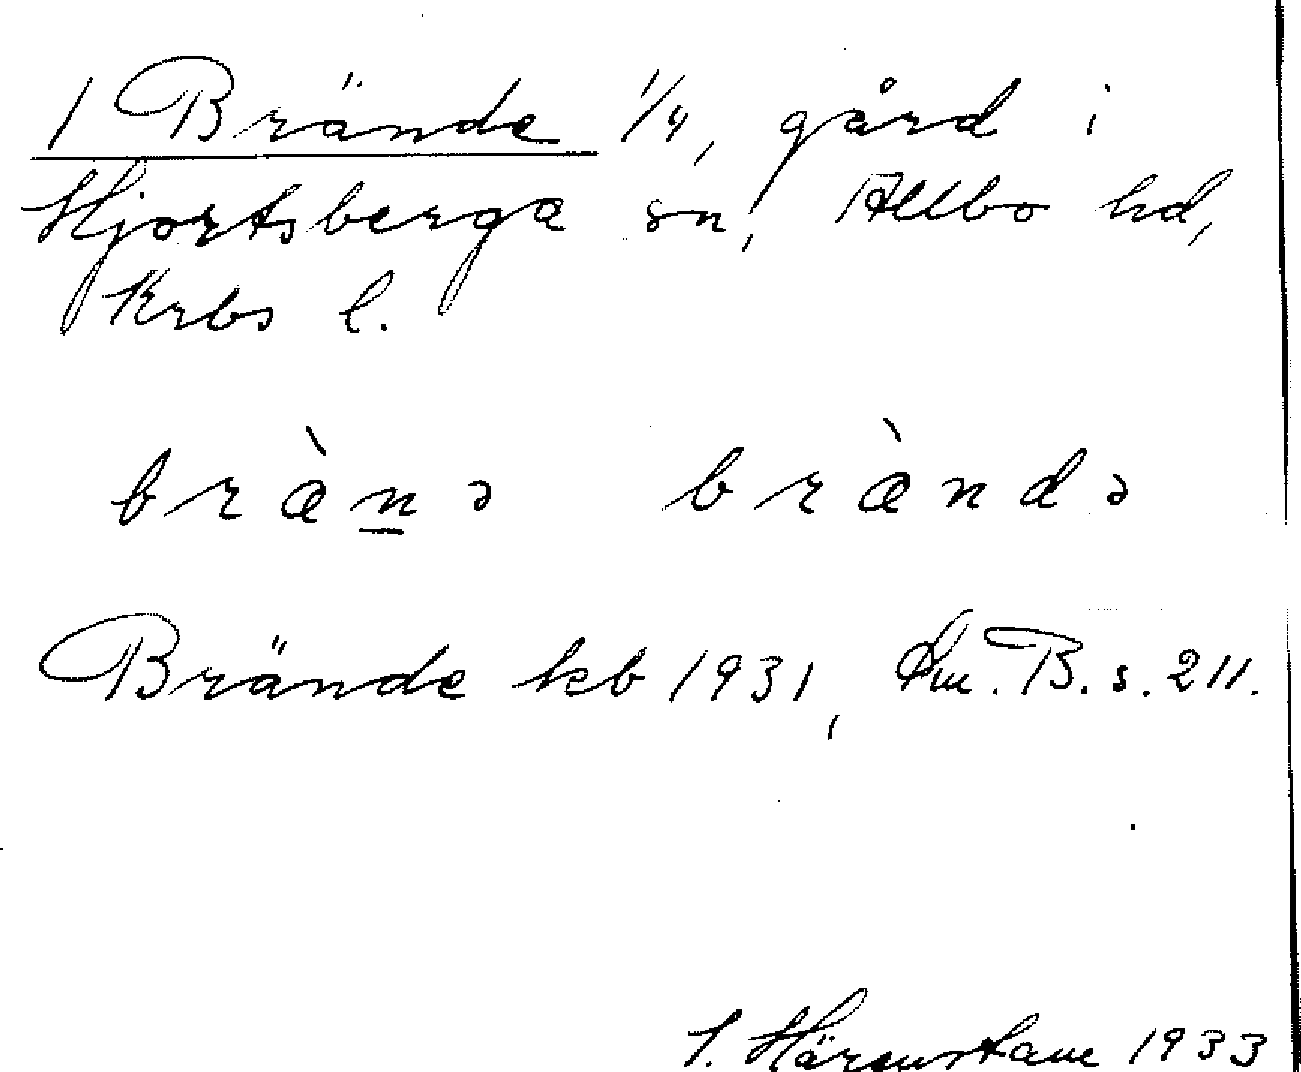 1 Brände 1/4, gård i
Hjortsberga sn, Allbo hd,
Krbs l.
bræ̀n̲ə bræ̀ndə
Brände kb 1931, Sm. B. s. 211.
1933